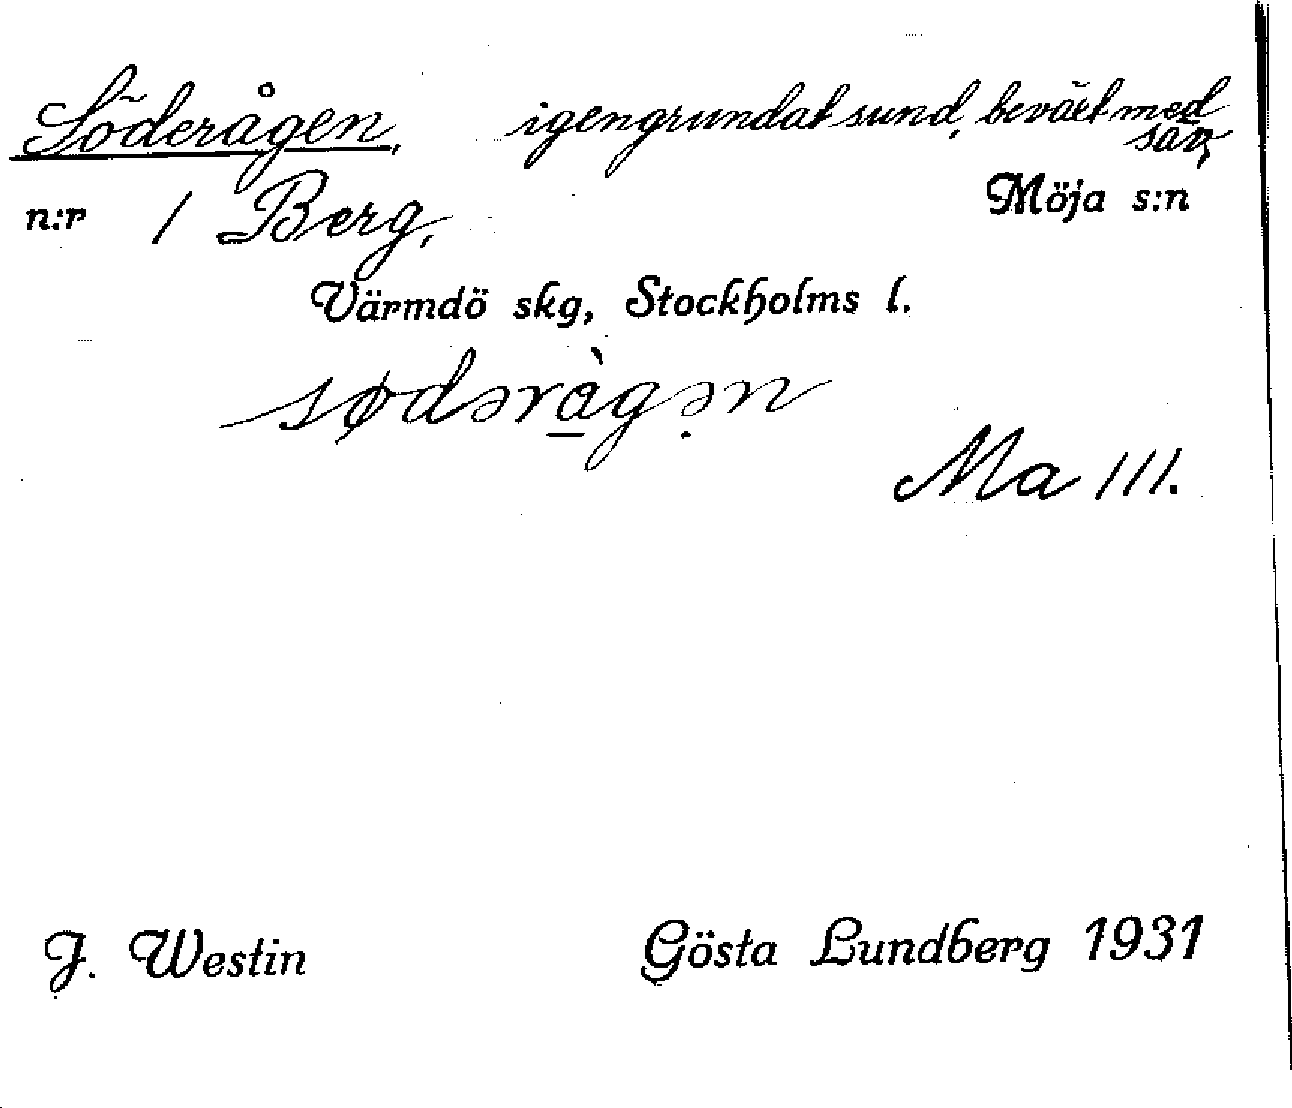 Söderågen, igengrundat sund, beväxt med
säv,
n:r 1 Berg, Möja s:n
Värmdö skg, Stockholms l.
sødəràgən
Ma III.
J. Westin Gösta Lundberg 1931